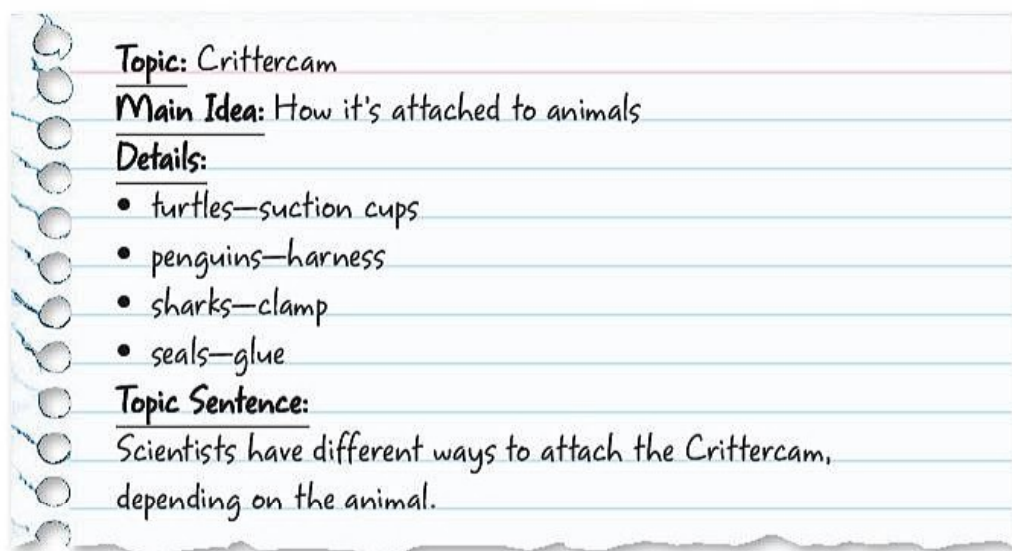 Topic: Crittercam
Main Idea: How it's attached to animals
Details:
• turtles—suction cups
• penguins—harness
• sharks—clamp
• seals—glue
Topic Sentence:
Scientists have different ways to attach the Crittercam,
depending on the animal.